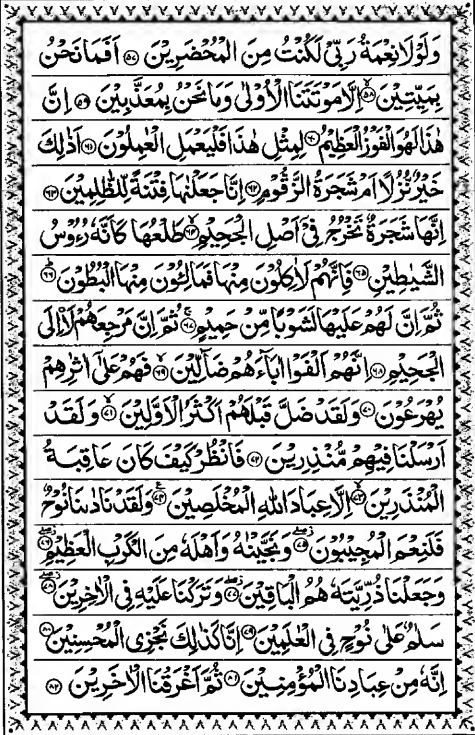 وَلَوْلَا نِعْمَةُ رَبِّيْ لَكُنْتُ مِنَ الْمُحْضَرِيْنَ ۝۵۷ اَفَمَا نَحْنُ
بِمَيِّتِيْنَ ۝۵۸ اِلَّا مَوْتَتَنَا الْاُوْلٰى وَمَا نَحْنُ بِمُعَذَّبِيْنَ ۝۵۹ اِنَّ
هٰذَا لَهُوَ الْفَوْزُ الْعَظِيْمُ ۝۶۰ لِمِثْلِ هٰذَا فَلْيَعْمَلِ الْعٰمِلُوْنَ ۝۶۱ اَذٰلِكَ
خَيْرٌ نُّزُلًا اَمْ شَجَرَةُ الزَّقُّوْمِ ۝۶۲ اِنَّا جَعَلْنٰهَا فِتْنَةً لِّلظّٰلِمِيْنَ ۝۶۳
اِنَّهَا شَجَرَةٌ تَخْرُجُ فِيْٓ اَصْلِ الْجَحِيْمِ ۝۶۴ طَلْعُهَا كَاَنَّهٗ رُءُوْسُ
الشَّيٰطِيْنِ ۝۶۵ فَاِنَّهُمْ لَاٰكِلُوْنَ مِنْهَا فَمَالِـُٔوْنَ مِنْهَا الْبُطُوْنَ ۝۶۶
ثُمَّ اِنَّ لَهُمْ عَلَيْهَا لَشَوْبًا مِّنْ حَمِيْمٍ ۝۶۷ ثُمَّ اِنَّ مَرْجِعَهُمْ لَا۟اِلَى
الْجَحِيْمِ ۝۶۸ اِنَّهُمْ اَلْفَوْا اٰبَآءَهُمْ ضَآلِّيْنَ ۝۶۹ فَهُمْ عَلٰٓى اٰثٰرِهِمْ
يُهْرَعُوْنَ ۝۷۰ وَلَقَدْ ضَلَّ قَبْلَهُمْ اَكْثَرُ الْاَوَّلِيْنَ ۝۷۱ وَلَقَدْ
اَرْسَلْنَا فِيْهِمْ مُّنْذِرِيْنَ ۝۷۲ فَانْظُرْ كَيْفَ كَانَ عَاقِبَةُ
الْمُنْذَرِيْنَ ۝۷۳ اِلَّا عِبَادَ اللّٰهِ الْمُخْلَصِيْنَ ۝۷۴ وَلَقَدْ نَادٰىنَا نُوْحٌ
فَلَنِعْمَ الْمُجِيْبُوْنَ ۝۷۵ وَنَجَّيْنٰهُ وَاَهْلَهٗ مِنَ الْكَرْبِ الْعَظِيْمِ ۝۷۶
وَجَعَلْنَا ذُرِّيَّتَهٗ هُمُ الْبٰقِيْنَ ۝۷۷ وَتَرَكْنَا عَلَيْهِ فِى الْاٰخِرِيْنَ ۝۷۸
سَلٰمٌ عَلٰى نُوْحٍ فِى الْعٰلَمِيْنَ ۝۷۹ اِنَّا كَذٰلِكَ نَجْزِى الْمُحْسِنِيْنَ ۝۸۰
اِنَّهٗ مِنْ عِبَادِنَا الْمُؤْمِنِيْنَ ۝۸۱ ثُمَّ اَغْرَقْنَا الْاٰخَرِيْنَ ۝۸۲